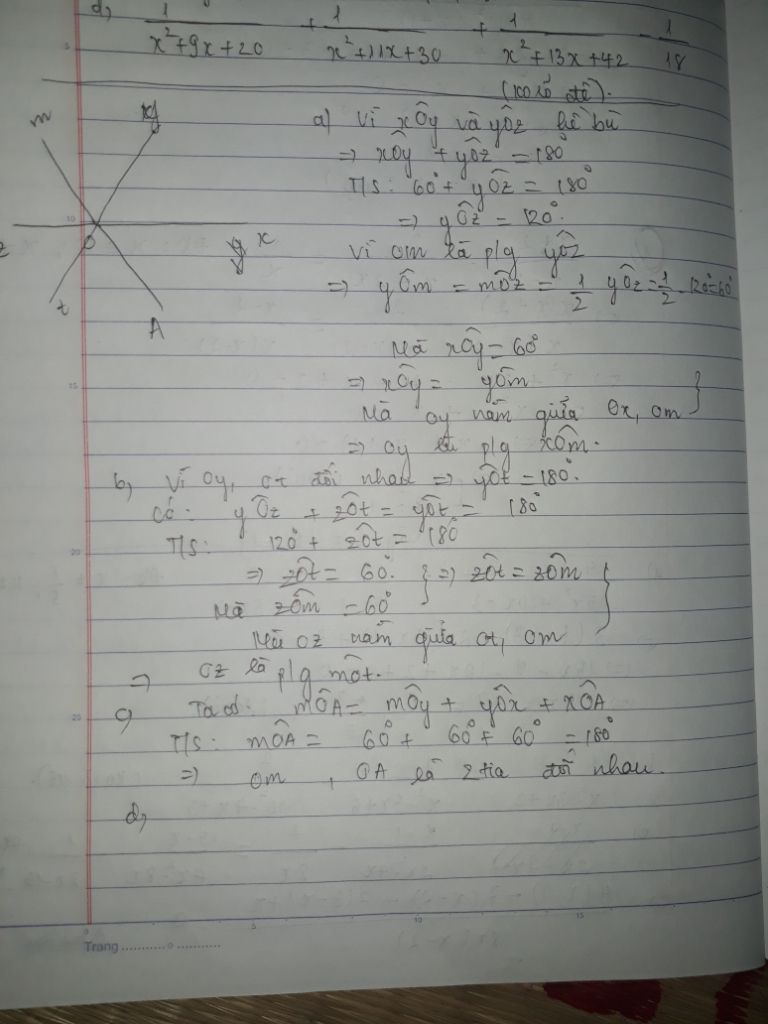 d) 1/(x²+9x+20) + 1/(x²+11x+30) + 1/(x²+13x+42) = 1/18
m
y
z
O
x
t
A
a) Vì xÔy và yÔz kề bù
=> xÔy + yÔz = 180°
T/S: 60° + yÔz = 180°
=> yÔz = 120°.
Vì Om là p/g yÔz
=> yÔm = mÔz = 1/2 yÔz = 1/2 . 120° = 60°
Mà xÔy = 60°
=> xÔy = yÔm
Mà Oy nằm giữa Ox, Om
=> Oy là p/g xÔm.
b, Vì Oy, Ot đối nhau => yÔt = 180°.
Có: yÔz + zÔt = yÔt = 180°
T/S: 120° + zÔt = 180°
=> zÔt = 60°. } => zÔt = zÔm
Mà zÔm = 60°
Mà Oz nằm giữa Ot, Om
=> Oz là p/g mÔt.
c, Ta có: mÔA = mÔy + yÔx + xÔA
T/S: mÔA = 60° + 60° + 60° = 180°
=> Om, OA là 2 tia đối nhau.
d,
Trang